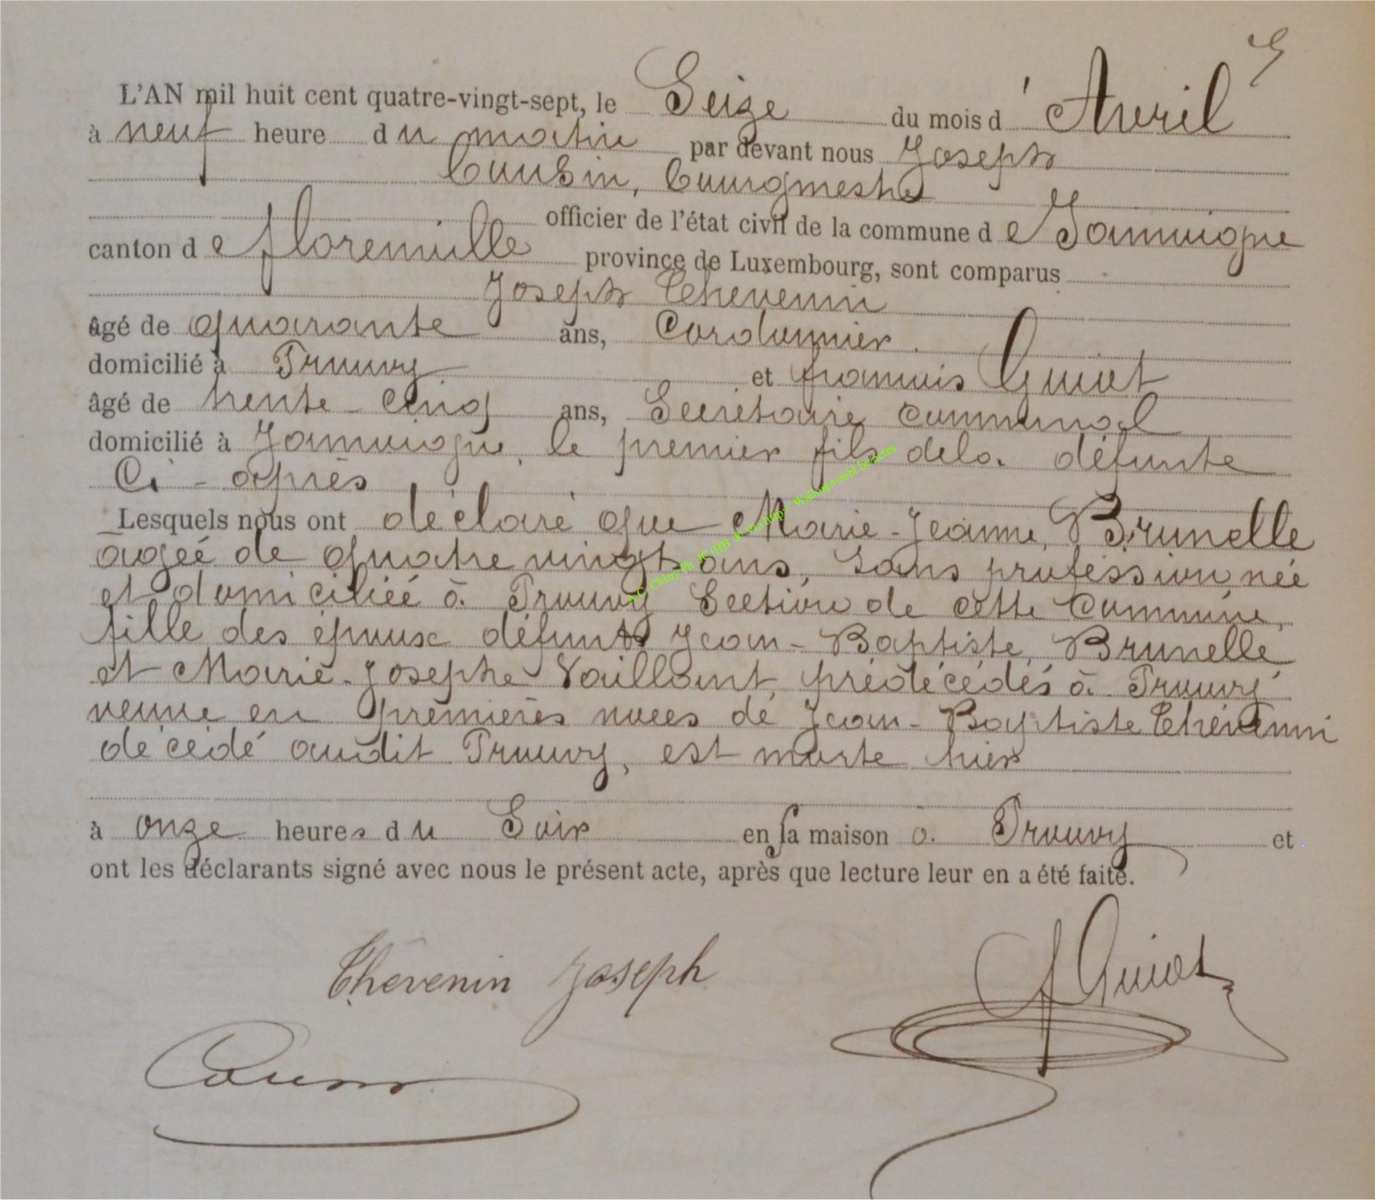 L'AN mil huit cent quatre-vingt-sept, le Seize du mois d' Avril
à neuf heure du matin par devant nous Joseph
Cousin, Bourgmestre
officier de l'état civil de la commune de Jamoigne
canton de florenville province de Luxembourg, sont comparus
Joseph Thévenin
âgé de quarante ans, Cordonnier
domicilié à Prouvy et françois Guiot
âgé de trente-cinq ans, Secrétaire communal
domicilié à Jamoigne, le premier fils de la défunte
Ci-après
Lesquels nous ont déclaré que Marie-Jeanne Brunelle
âgée de quatre vingts ans, Sans profession née
et domiciliée à Prouvy Section de cette Commune,
fille des époux défunts Jean-Baptiste Brunelle
et Marie-Josephe Vaillant, prédécédés à Prouvy
veuve en premières noces de Jean-Baptiste Thévenin
décédé audit Prouvy, est morte hier
à onze heures du Soir en sa maison à Prouvy et
ont les déclarants signé avec nous le présent acte, après que lecture leur en a été faite.
Thévenin Joseph
f Guiot
Cousin